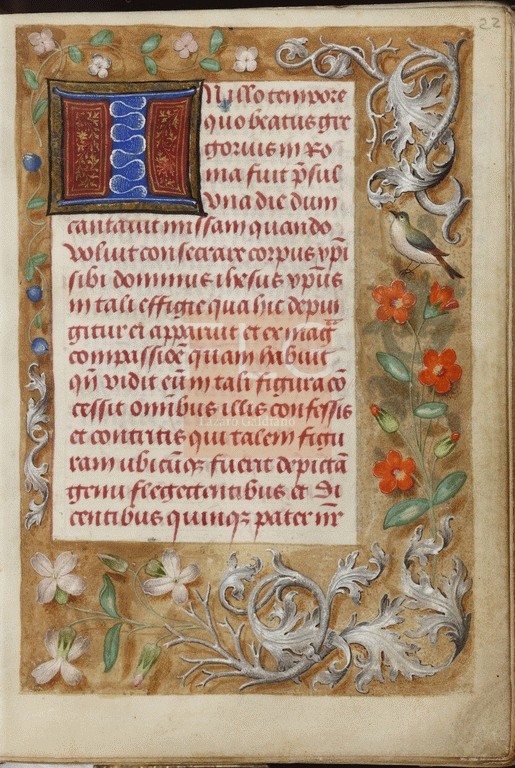 22
In illo tempore
quo beatus gre
gorius in Ro
ma fuit p̄sul
vna die dum
cantauit missam quando
voluit consecrare corpus xp̄i
sibi dominus ihesus xp̄us
in tali effigie qua hic depin
gitur ei apparuit et ex mag̅
compassiōe quam habuit
qn̄ vidit eū in tali figura cō
cessit omībus illis confessis
et contritis qui talem figu
ram ubicūqz fuerit depictā
genu flegettentibus et Di
centibus quinqz pater nr̄
Lázaro Galdiano